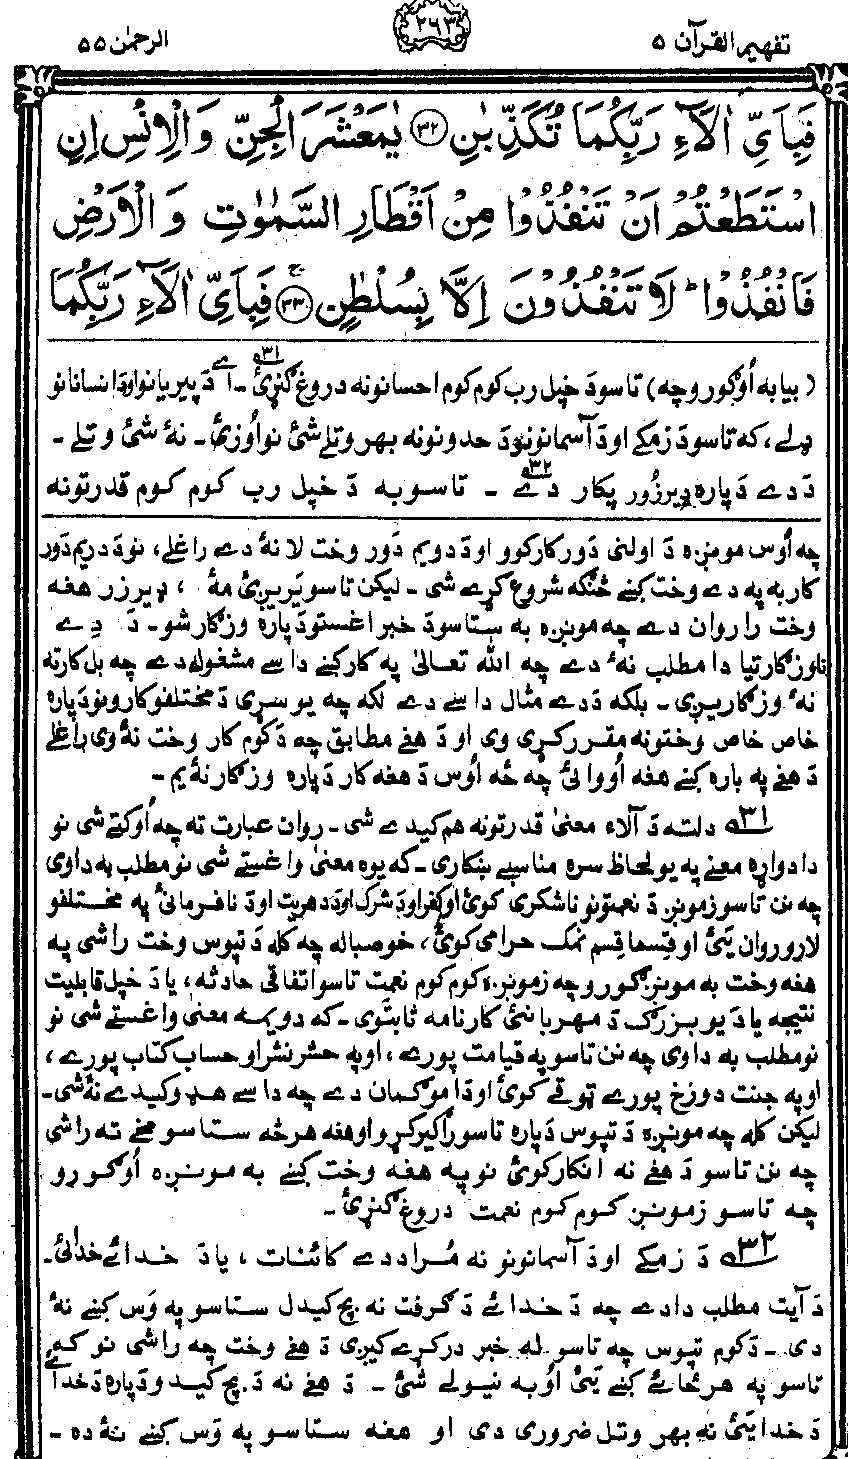 تفهيم القرآن ۵
۲۶۳
الرحمٰن ۵۵
فَبِاَيِّ اٰلَآءِ رَبِّكُمَا تُكَذِّبٰنِ ﴿۳۲﴾ يٰمَعْشَرَ الْجِنِّ وَالْاِنْسِ اِنِ
اسْتَطَعْتُمْ اَنْ تَنْفُذُوْا مِنْ اَقْطَارِ السَّمٰوٰتِ وَالْاَرْضِ
فَانْفُذُوْا ؕ لَا تَنْفُذُوْنَ اِلَّا بِسُلْطٰنٍ ﴿۳۳﴾ فَبِاَيِّ اٰلَآءِ رَبِّكُمَا
( بيا به اُوګورو چه) تاسو دَ خپل رب کوم کوم احسانونه دروغ ګنړئ ۳۱ـ اَے دَ پيريانو او دَ انسانانو
ډلے، که تاسو دَ زمکے او دَ آسمانونو دَ حدونونه بهر وتلے شئ نو اُوزئ ـ نۀ شئ وتلے ـ
دَ دے دَپاره ډير زُور پکار دے ۳۲ ـ تاسو به دَ خپل رب کوم کوم قدرتونه
چه اُوس مونږه دَ اولنئ دَور کار کوو او دَ دويم دَور وخت لا نۀ دے راغلے، نو دَ دريم دَور
کار به په دے وخت کښے څنګه شروع کړے شی ـ ليکن تاسو يريږئ مۀ ، ډير زر هغه
وخت را روان دے چه مونږه به ستاسو دَ خبر اغستو دَپاره وزګار شو ـ دَ دے
ناوزګارتيا دا مطلب نۀ دے چه الله تعالیٰ په کار کښے داسے مشغوله دے چه بل کار ته
نۀ وزګاريږی ـ بلکه دَ دے مثال داسے دے لکه چه يو سړی دَ مختلفو کارونو دَپاره
خاص خاص وختونه مقرر کړی وی او دَ هغے مطابق چه دَ کوم کار وخت نۀ وی راغلے
دَ هغے په باره کښے هغه اُووائی چُه څه اُوس دَ هغه کار دَپاره وزګار نۀ يم ـ
۳۱ دلته دَ آلاء معنیٰ قدرتونه هم کيدے شی ـ روان عبارت ته چه اُوکتے شی نو
دا دواړه معنے په يو لحاظ سره مناسبے ښکاری ـ که يوه معنیٰ واغستے شی نو مطلب به دا وی
چه نن تاسو زمونږ دَ نعمتونو ناشکری کوئ او کفر او دَ شرک او دَ دهريت او دَ نافرمانئ په مختلفو
لارو روان يئ او قسما قسم نمک حرامی کوئ، خو صبا له چه کله دَ تپوس وخت راشی په
هغه وخت به مونږ ګورو چه زمونږه کوم کوم نعمت تاسو اتفاقی حادثه، يا دَ خپل قابليت
نتيجه يا دَ يو بزرګ دَ مهربانئ کارنامه ثابتوی ـ که دويمه معنیٰ واغستے شی نو
نو مطلب به دا وی چه نن تاسو په قيامت پورے، او په حشر نشر او حساب کتاب پورے،
او په جنت دوزخ پورے ټوقے کوئ او دا مو ګمان دے چه داسے هډو کيدے نۀ شی ـ
ليکن کله چه مونږه دَ تپوس دَپاره تاسو راګير کړو او هغه هر څه ستاسو مخے ته راشی
چه نن تاسو دَ هغے نه انکار کوئ نو په هغه وخت کښے به مونږه اُوګورو
چه تاسو زمونږ کوم کوم نعمت دروغ ګنړئ ـ
۳۲ دَ زمکے او دَ آسمانونو نه مُراد دے کائنات، يا دَ خدائے خدائی ـ
دَ آيت مطلب دا دے چه دَ خدائے دَ ګرفت نه بچ کيدل ستاسو په وَس کښے نۀ
دی ـ دَ کوم تپوس چه تاسو له خبر درکړے کيږی دَ هغے وخت چه راشی نو که
تاسو په هر ځائے کښے يئ اُوبه نيولے شئ ـ دَ هغے نه دَ بچ کيدو دَپاره دَ خدائے
دَ خدائی نه بهر وتل ضروری دی او هغه ستاسو په وَس کښے نۀ ده ـ